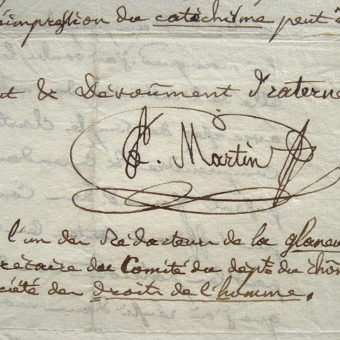 impression du catéchisme peut
t & Dévoûment Fraterne
C. Martin
l'un des Rédacteurs de la glaneu
crétaire du Comité du dépt. du Rhôn
ciété des droits de l'homme.